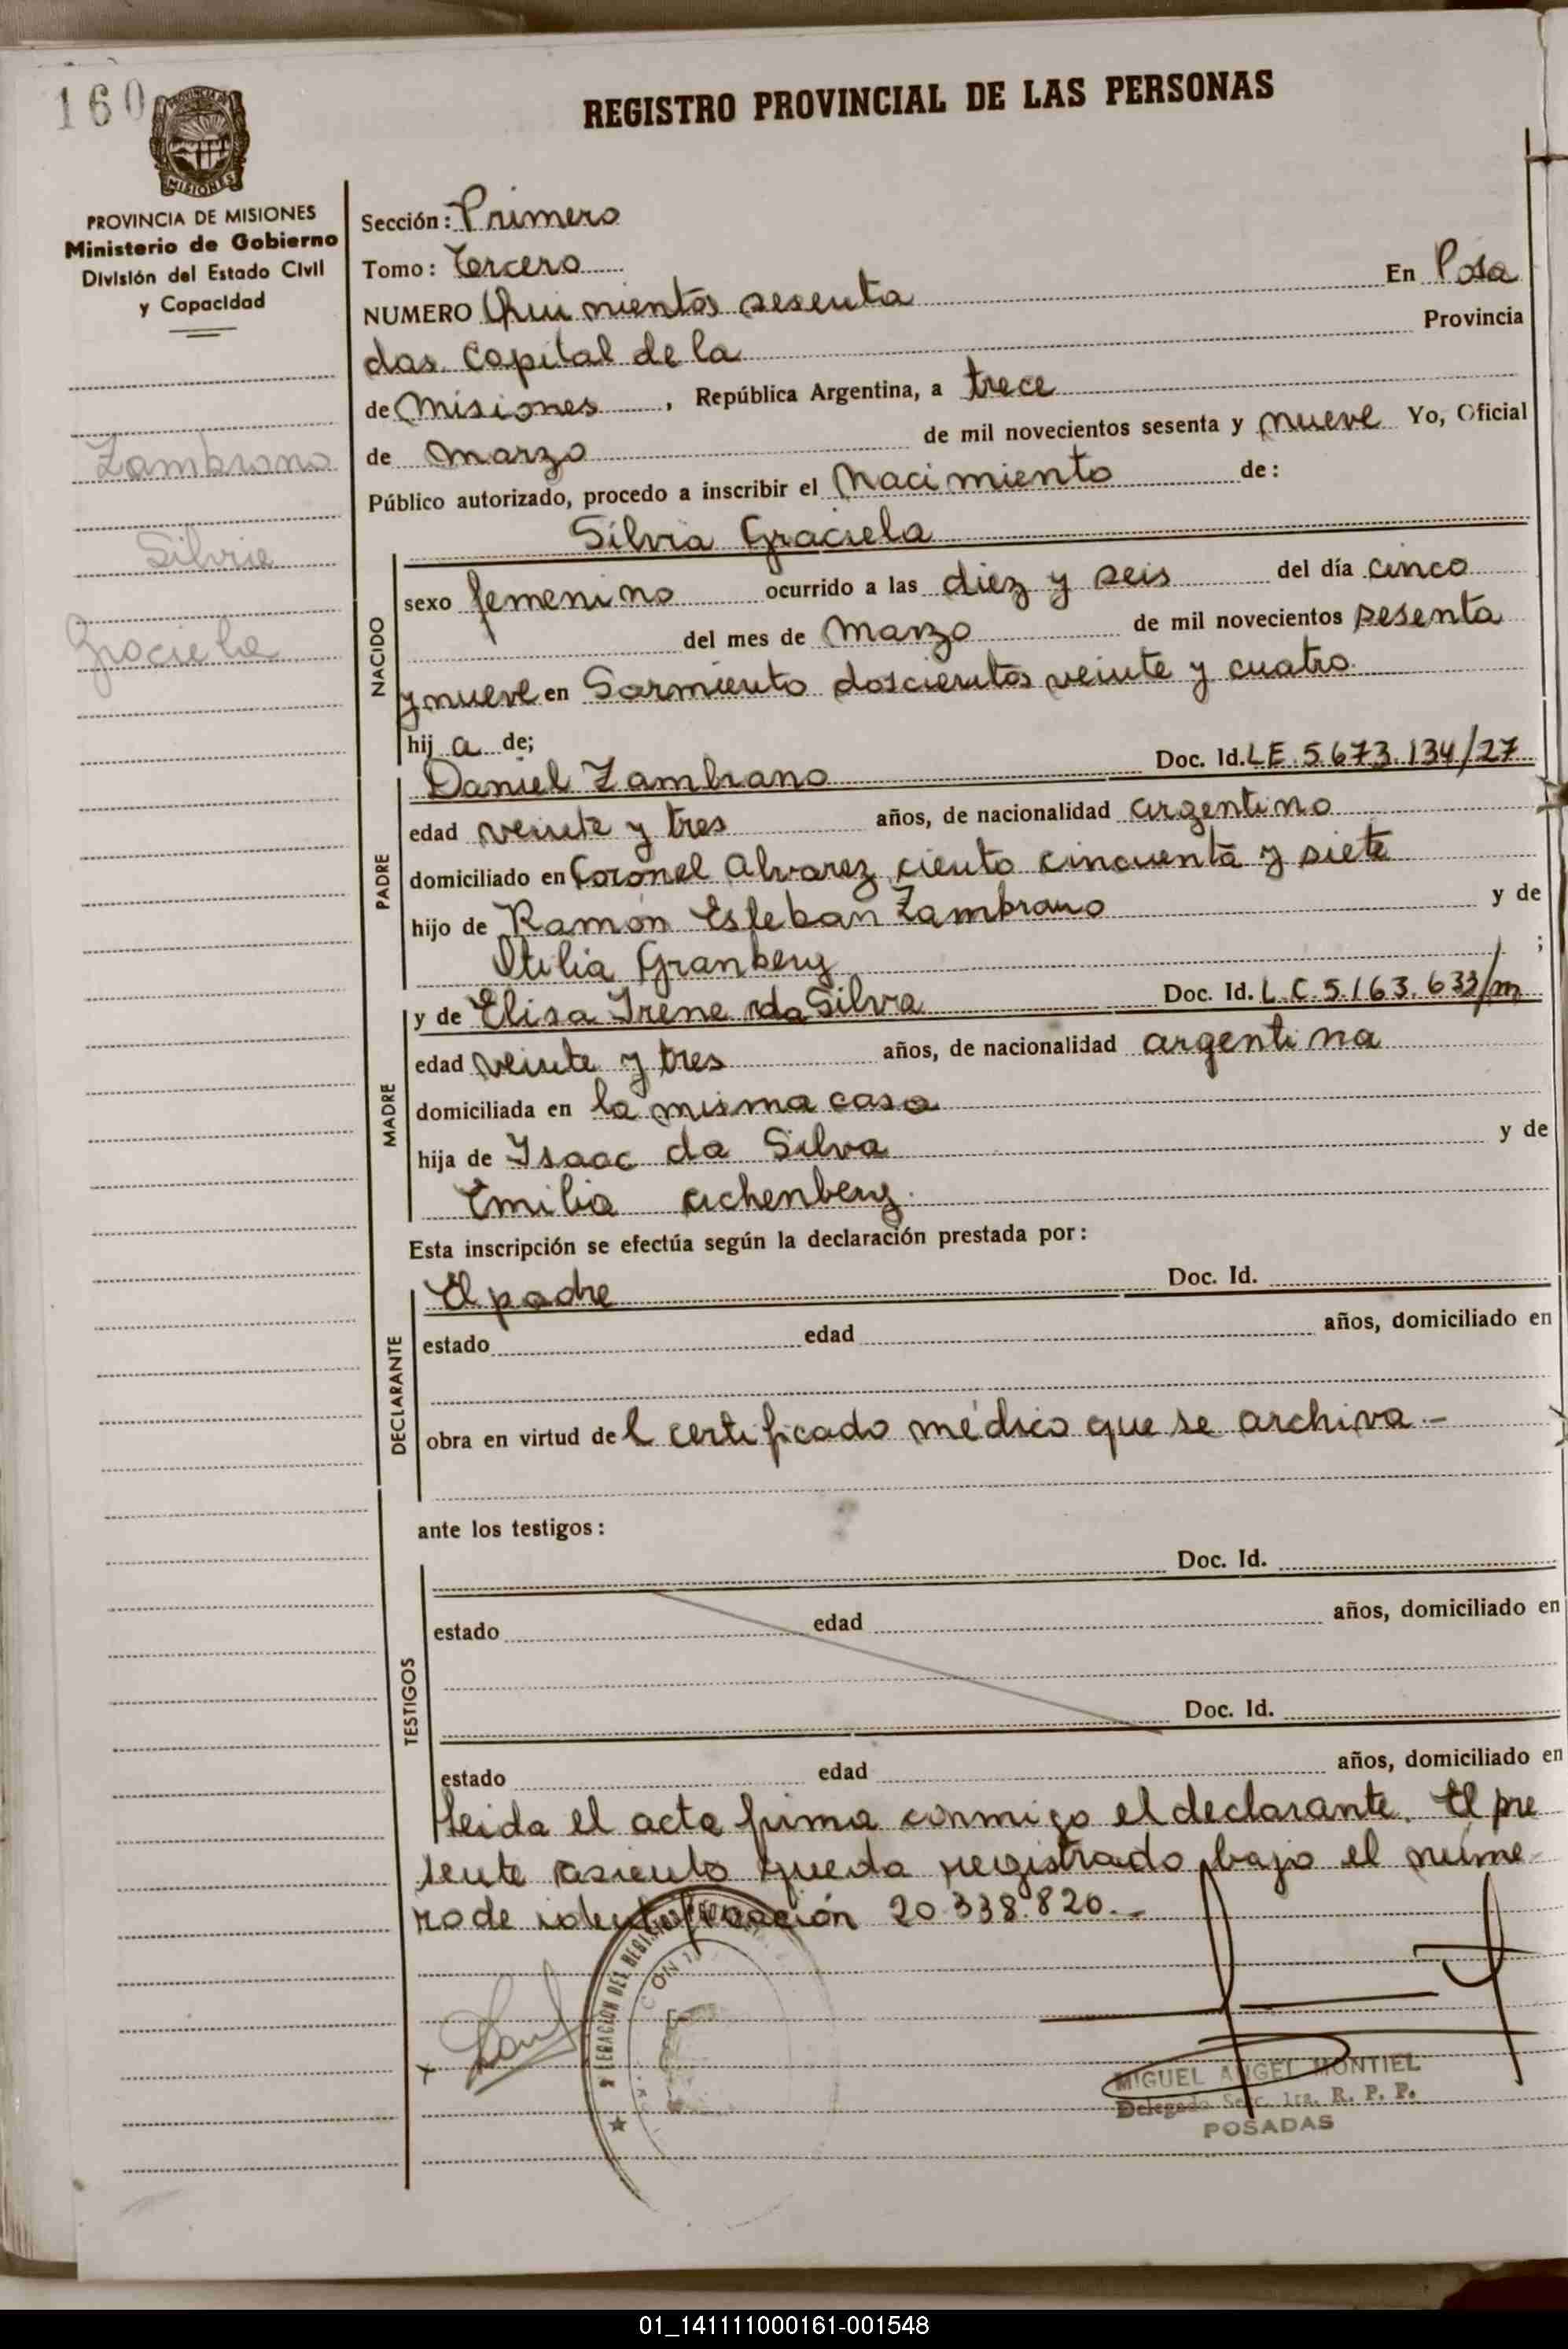 160
REGISTRO PROVINCIAL DE LAS PERSONAS
PROVINCIA DE MISIONES
Ministerio de Gobierno
División del Estado Civil
y Capacidad
Zambrano
Silvia
Graciela
Sección: Primero
Tomo: Tercero
NUMERO Quinientos sesenta En Posa
das Capital de la Provincia
de Misiones, República Argentina, a trece
de marzo de mil novecientos sesenta y nueve Yo, Oficial
Público autorizado, procedo a inscribir el Nacimiento de:
Silvia Graciela
NACIDO
sexo femenino ocurrido a las diez y seis del día cinco
del mes de Marzo de mil novecientos sesenta
y nueve en Sarmiento doscientos veinte y cuatro
hij a de;
PADRE
Daniel Zambrano Doc. Id. L E. 5.673.134/27
edad veinte y tres años, de nacionalidad argentino
domiciliado en Coronel Alvarez ciento cincuenta y siete
hijo de Ramón Esteban Zambrano y de
Otilia Granberg ;
MADRE
y de Elisa Irene da Silva Doc. Id. L.C. 5.163.633/m
edad veinte y tres años, de nacionalidad argentina
domiciliada en la misma casa
hija de Isaac da Silva y de
Emilia Achenberg.
Esta inscripción se efectúa según la declaración prestada por:
DECLARANTE
El padre Doc. Id.
estado edad años, domiciliado en
obra en virtud del certificado médico que se archiva.-
ante los testigos:
TESTIGOS
Doc. Id.
estado edad años, domiciliado en
Doc. Id.
estado edad años, domiciliado en
leida el acta firma conmigo el declarante. El pre
sente asiento queda registrado bajo el núme-
ro de identificación 20.338.820.-
MIGUEL ANGEL MONTIEL
Delegado Secc. 1ra. R. P. P.
POSADAS
01_141111000161-001548